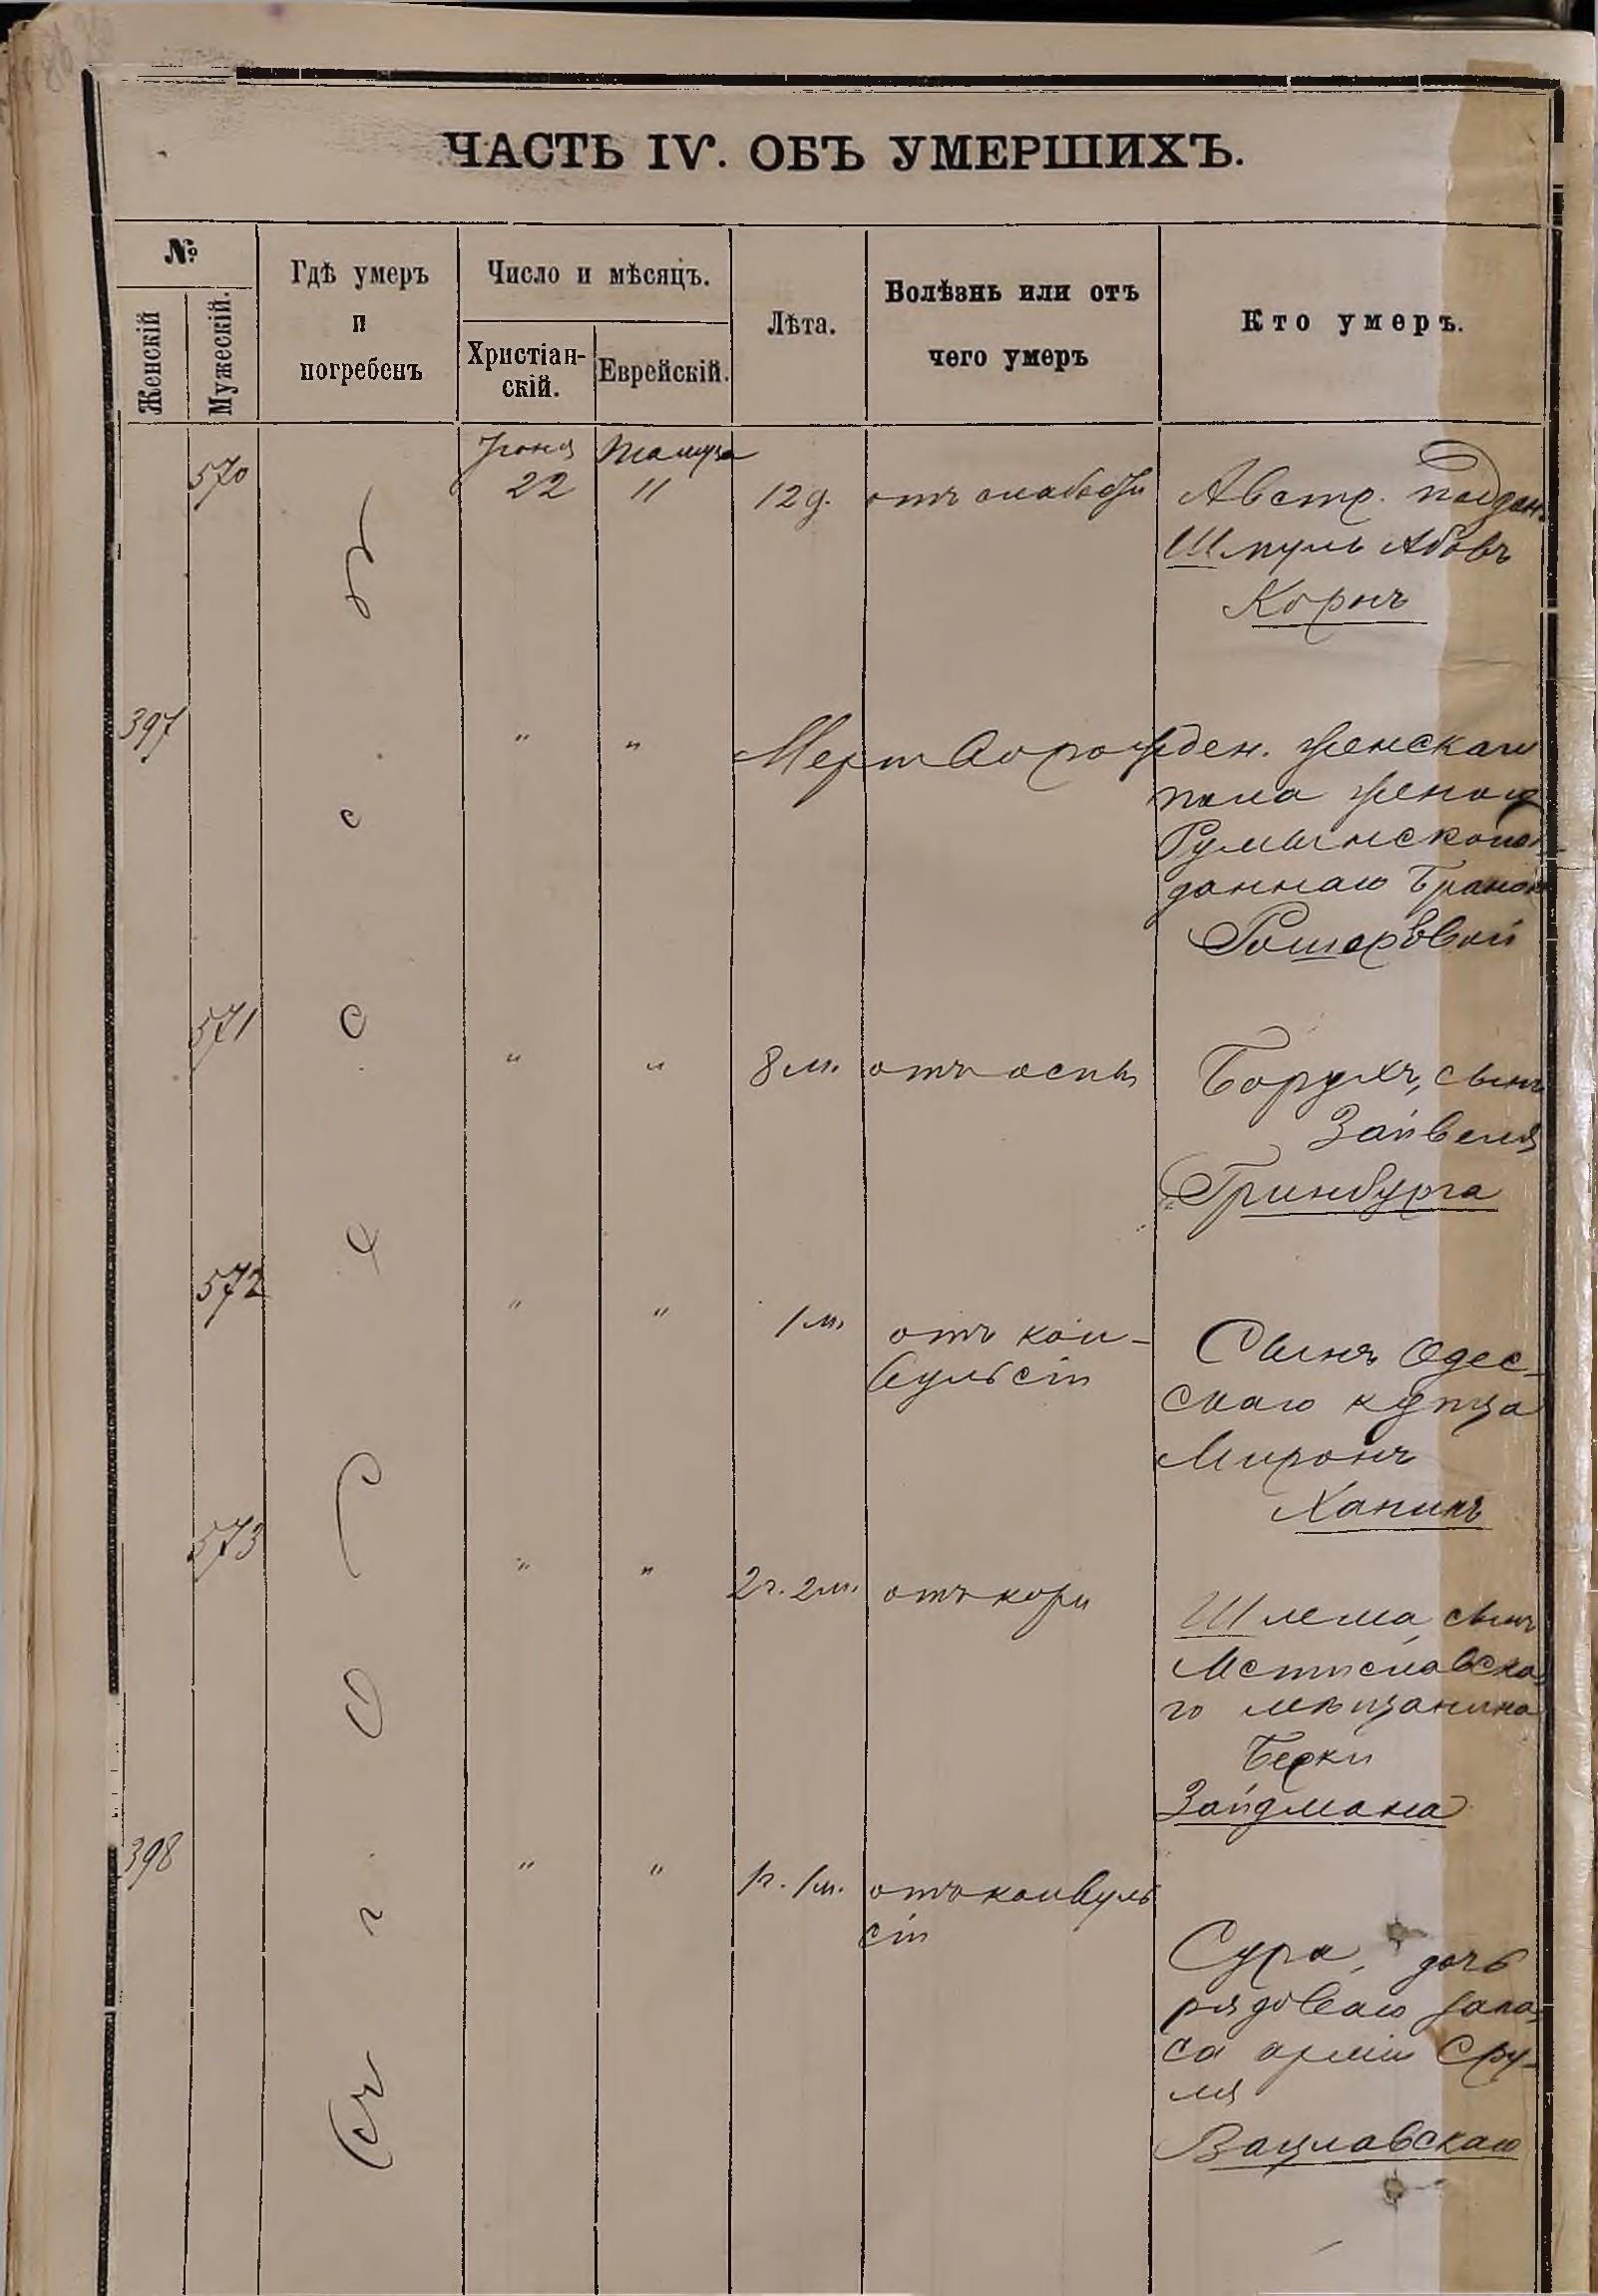 ЧАСТЬ IV. ОБЪ УМЕРШИХЪ.
№
Женскій
Мужескій.
Гдѣ умеръ
и
погребенъ
Число и мѣсяцъ.
Христіан-
скій.
Еврейскій.
Лѣта.
Болѣзнь или отъ
чего умеръ
Кто умеръ.
Іюня Тамуза
570 22 11 12 д. отъ слабости Австр. поддан.
Шмуль Абовъ
Корнъ
397 " " Мертворожден. женскаго
пола женою
Румынскопод-
даннаго
571 " " 8 м. отъ оспы Борухъ, сынъ
Зайвеля
Гринбурга
572 " " 1 м. отъ кон-
вульсіи
Сынъ Одес-
скаго купца
Миронъ
Ханинъ
573 " " 2 г. 2 м. отъ кори
Шлема, сынъ
Мстиславска-
го мѣщанина
Берки
Зайдмана
398 " " 1 г. 1 м. отъ конвуль
сіи
Сура, дочь
рядоваго запа-
са арміи Сру-
ля
Вацлавскаго